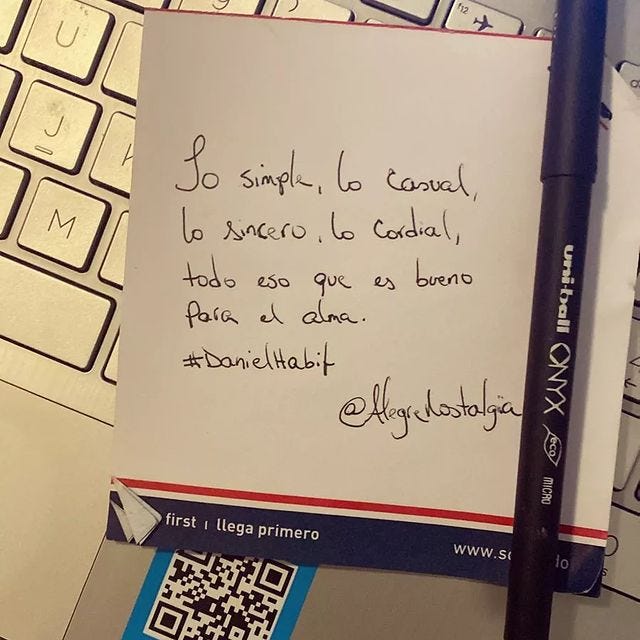 f12
U
J
M
Lo simple, lo casual,
lo sincero, lo cordial,
todo eso que es bueno
para el alma.
#DanielHabif
@AlegreNostalgia
first | llega primero
www.s
do
uni-ball ONYX eco MICRO